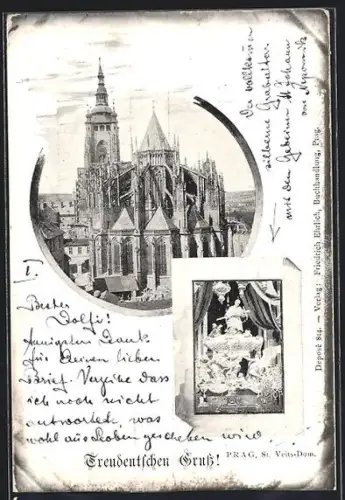 Der vollkommen
silberne Grabaltar
mit den Gebeinen St. Johann
von Nepomuk
I.)
Bester
Dolfi!
Innigsten Dank
für Deinen lieben
Brief. Verzeihe dass
ich noch nicht
antwortete, was
wohl aus loben geschehen wird.
Treudeutschen Gruß!
PRAG, St. Veits-Dom.
Deposé 814. — Verlag: Friedrich Ehrlich, Buchhandlung, Prag.